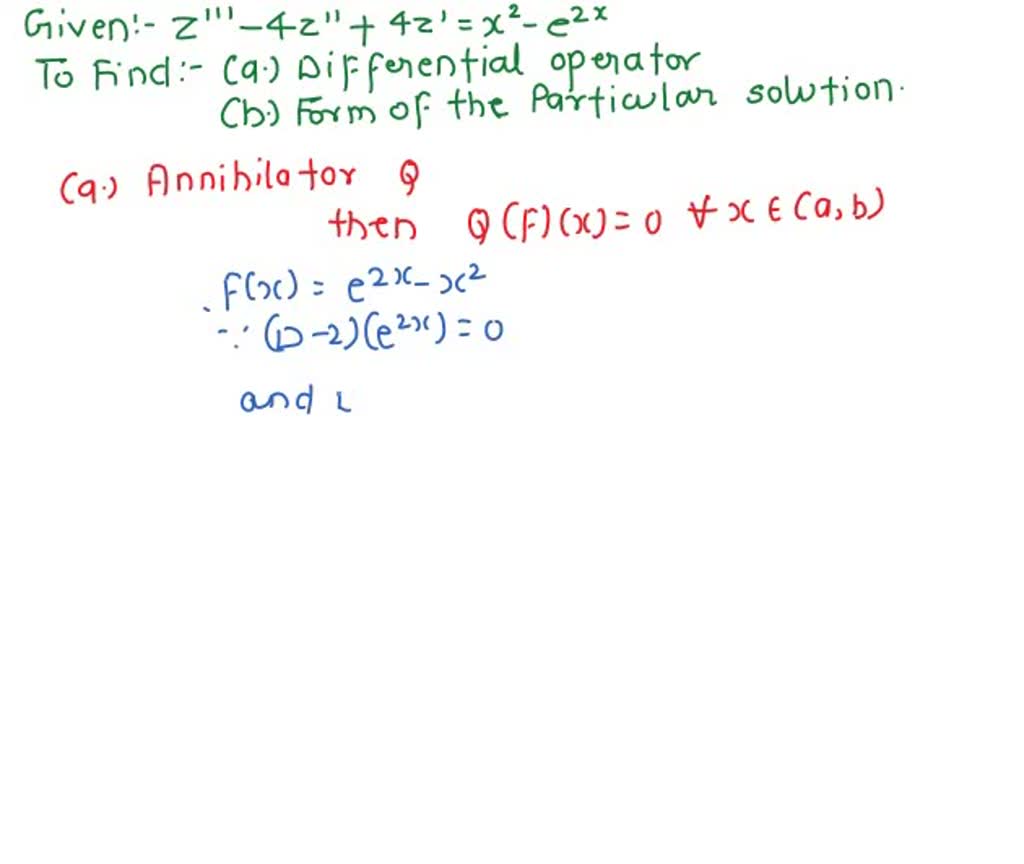 Given:- z''' - 4z'' + 4z' = x² - e²ˣ
To Find:- (a.) Differential operator
(b.) Form of the Particular solution.
(a.) Annihilator Q
then Q(F)(x) = 0 ∀ x ∈ (a, b)
F(x) = e²ˣ - x²
∵ (D - 2)(e²ˣ) = 0
and